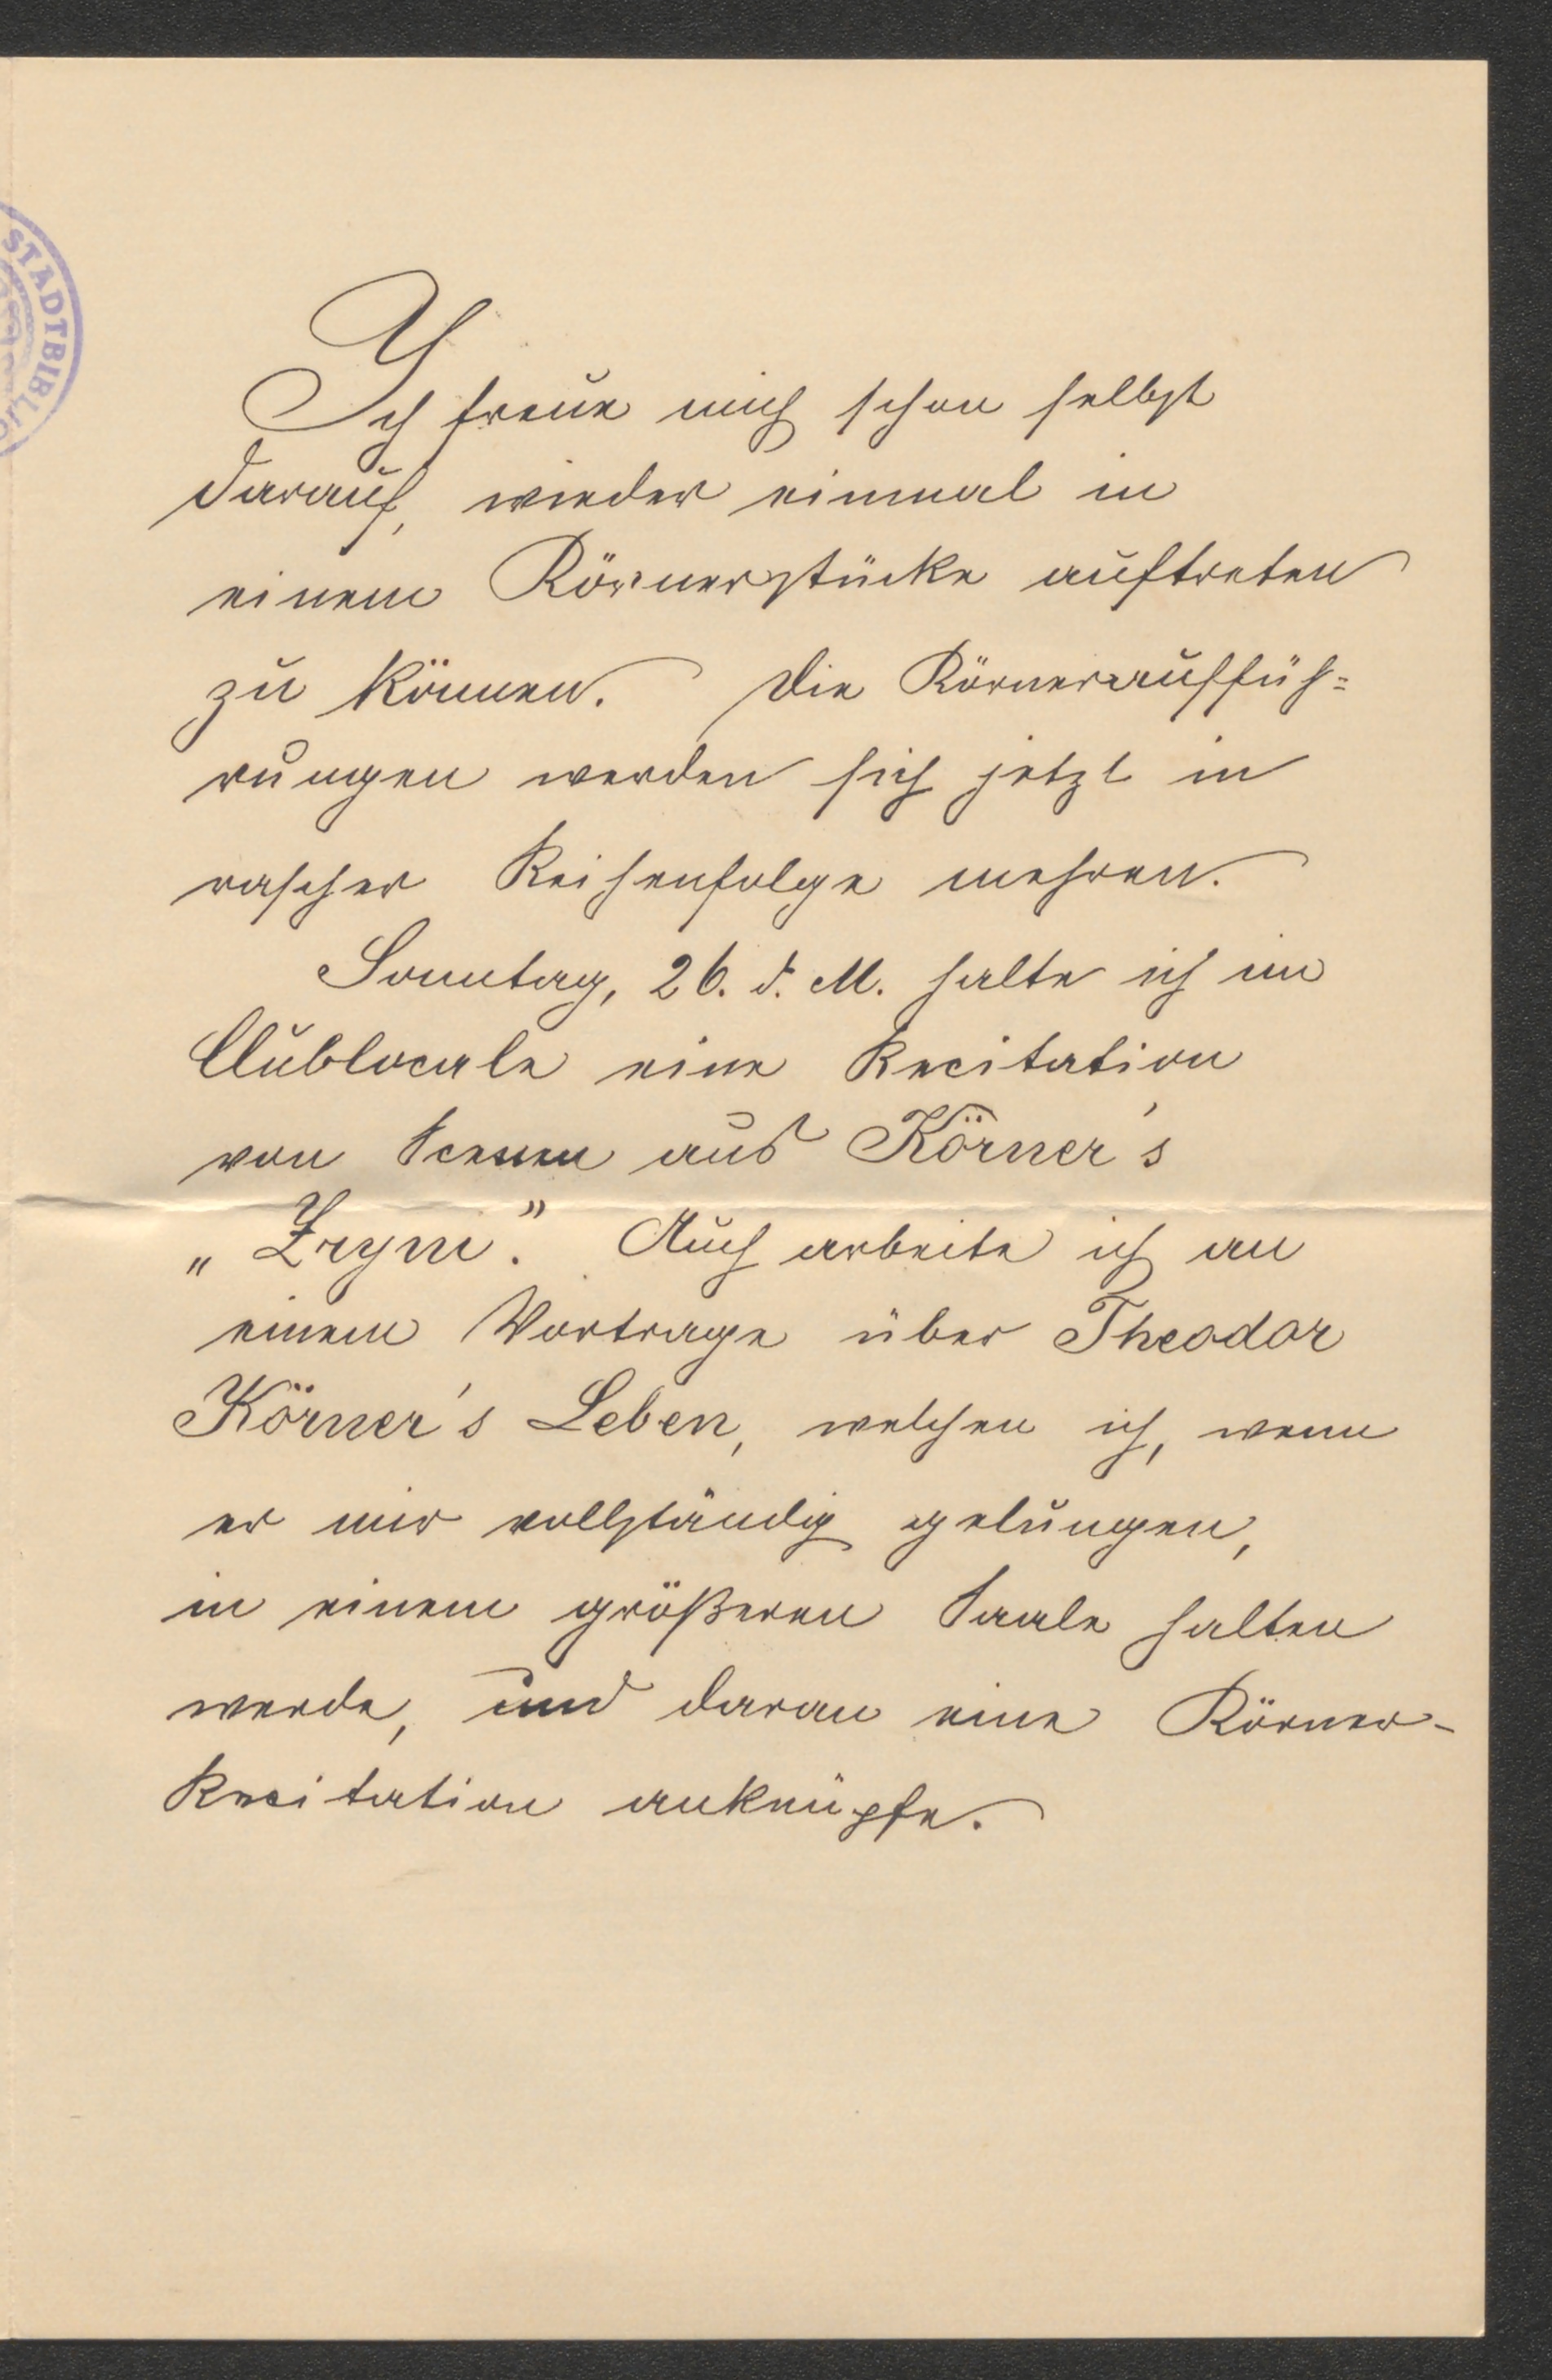 STADTBIBL
Ich freue mich schon selbst
darauf, wieder einmal in
einem Körnerstücke auftreten
zu können. Die Körnerauffüh=
rungen werden sich jetzt in
rascher Reihenfolge mehren.
Sonntag, 26. d. M. halte ich im
Clublocale eine Recitation
von Scenen aus Körner's
„Zryni." Auch arbeite ich an
einem Vortrage über Theodor
Körner's Leben, welchen ich, wenn
er mir vollständig gelungen,
in einem größeren Saale halten
werde, und daran eine Körner-
Recitation anknüpfe.